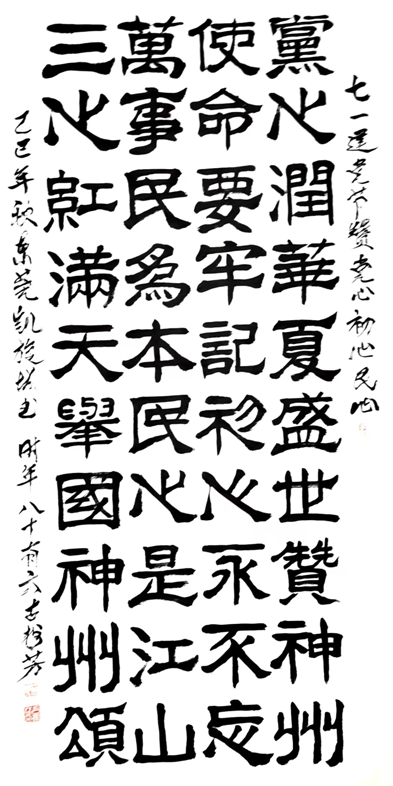 七一建党节贊党心初心民心
黨心潤華夏盛世贊神州
使命要牢記初心永不忘
萬事民為本民心是江山
三心紅滿天舉國神州頌
乙巳年东莞凯城书 时年八十有六芳